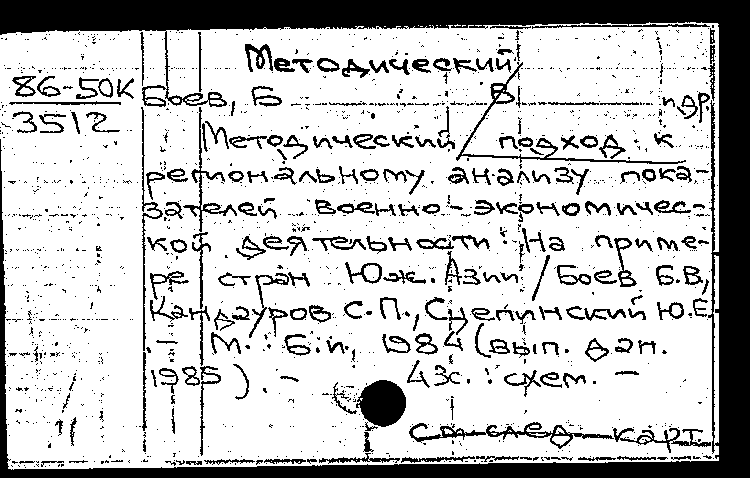 Методический
86-50К Боев, Б В и др.
3512
Методический подход к
региональному анализу пока-
зателей военно-экономичес-
кой деятельности: На приме-
ре стран Юж. Азии / Боев Б.В,
Кандауров С.П., Сцепинский Ю.Е.
.- М. : Б.и, 1984 (вып. дан.
1985). - 43с. : схем. -
см след. карт.